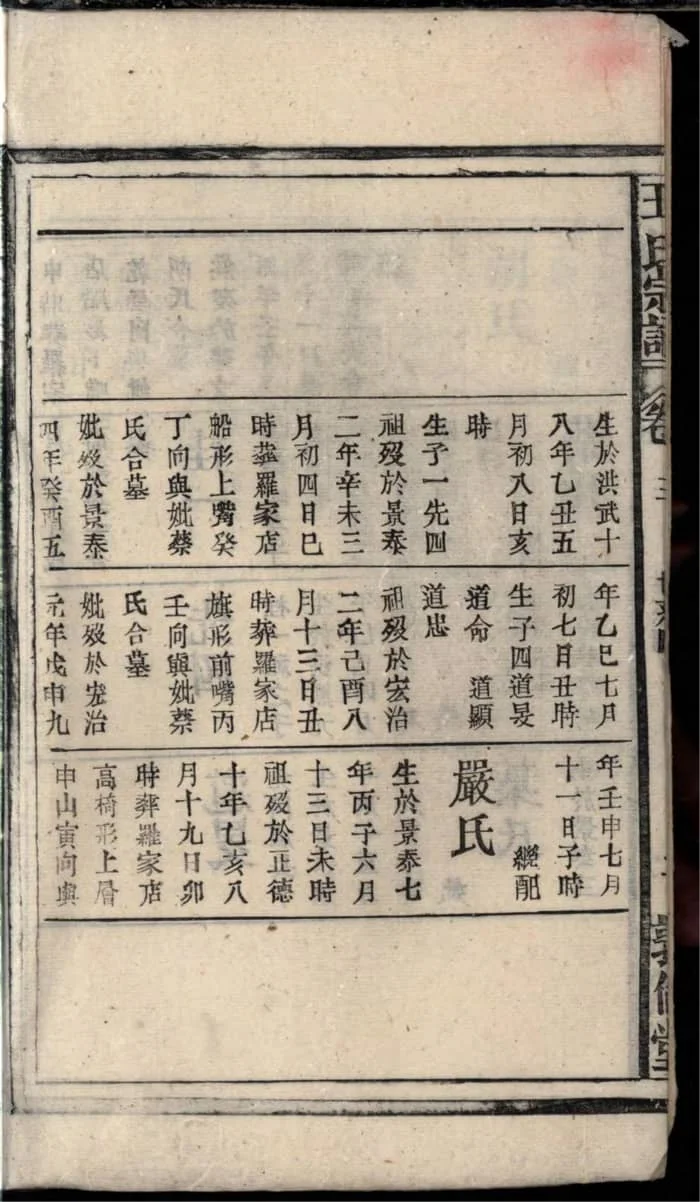 王氏宗譜 卷
三
敦倫堂
生於洪武十
八年乙丑五
月初八日亥
時
生子一先四
祖歿於景泰
二年辛未三
月初四日巳
時葬羅家店
船形上嘴癸
丁向與妣蔡
氏合墓
妣歿於景泰
四年癸酉五
年乙巳七月
初七日丑時
生子四道旻
道命 道顯
道忠
祖歿於宏治
二年己酉八
月十三日丑
時葬羅家店
旗形前嘴丙
壬向與妣蔡
氏合墓
妣歿於宏治
元年戊申九
年壬申七月
十一日子時
繼配
嚴氏
生於景泰七
年丙子六月
十三日未時
祖歿於正德
十年乙亥八
月十九日卯
時葬羅家店
高椅形上層
申山寅向與